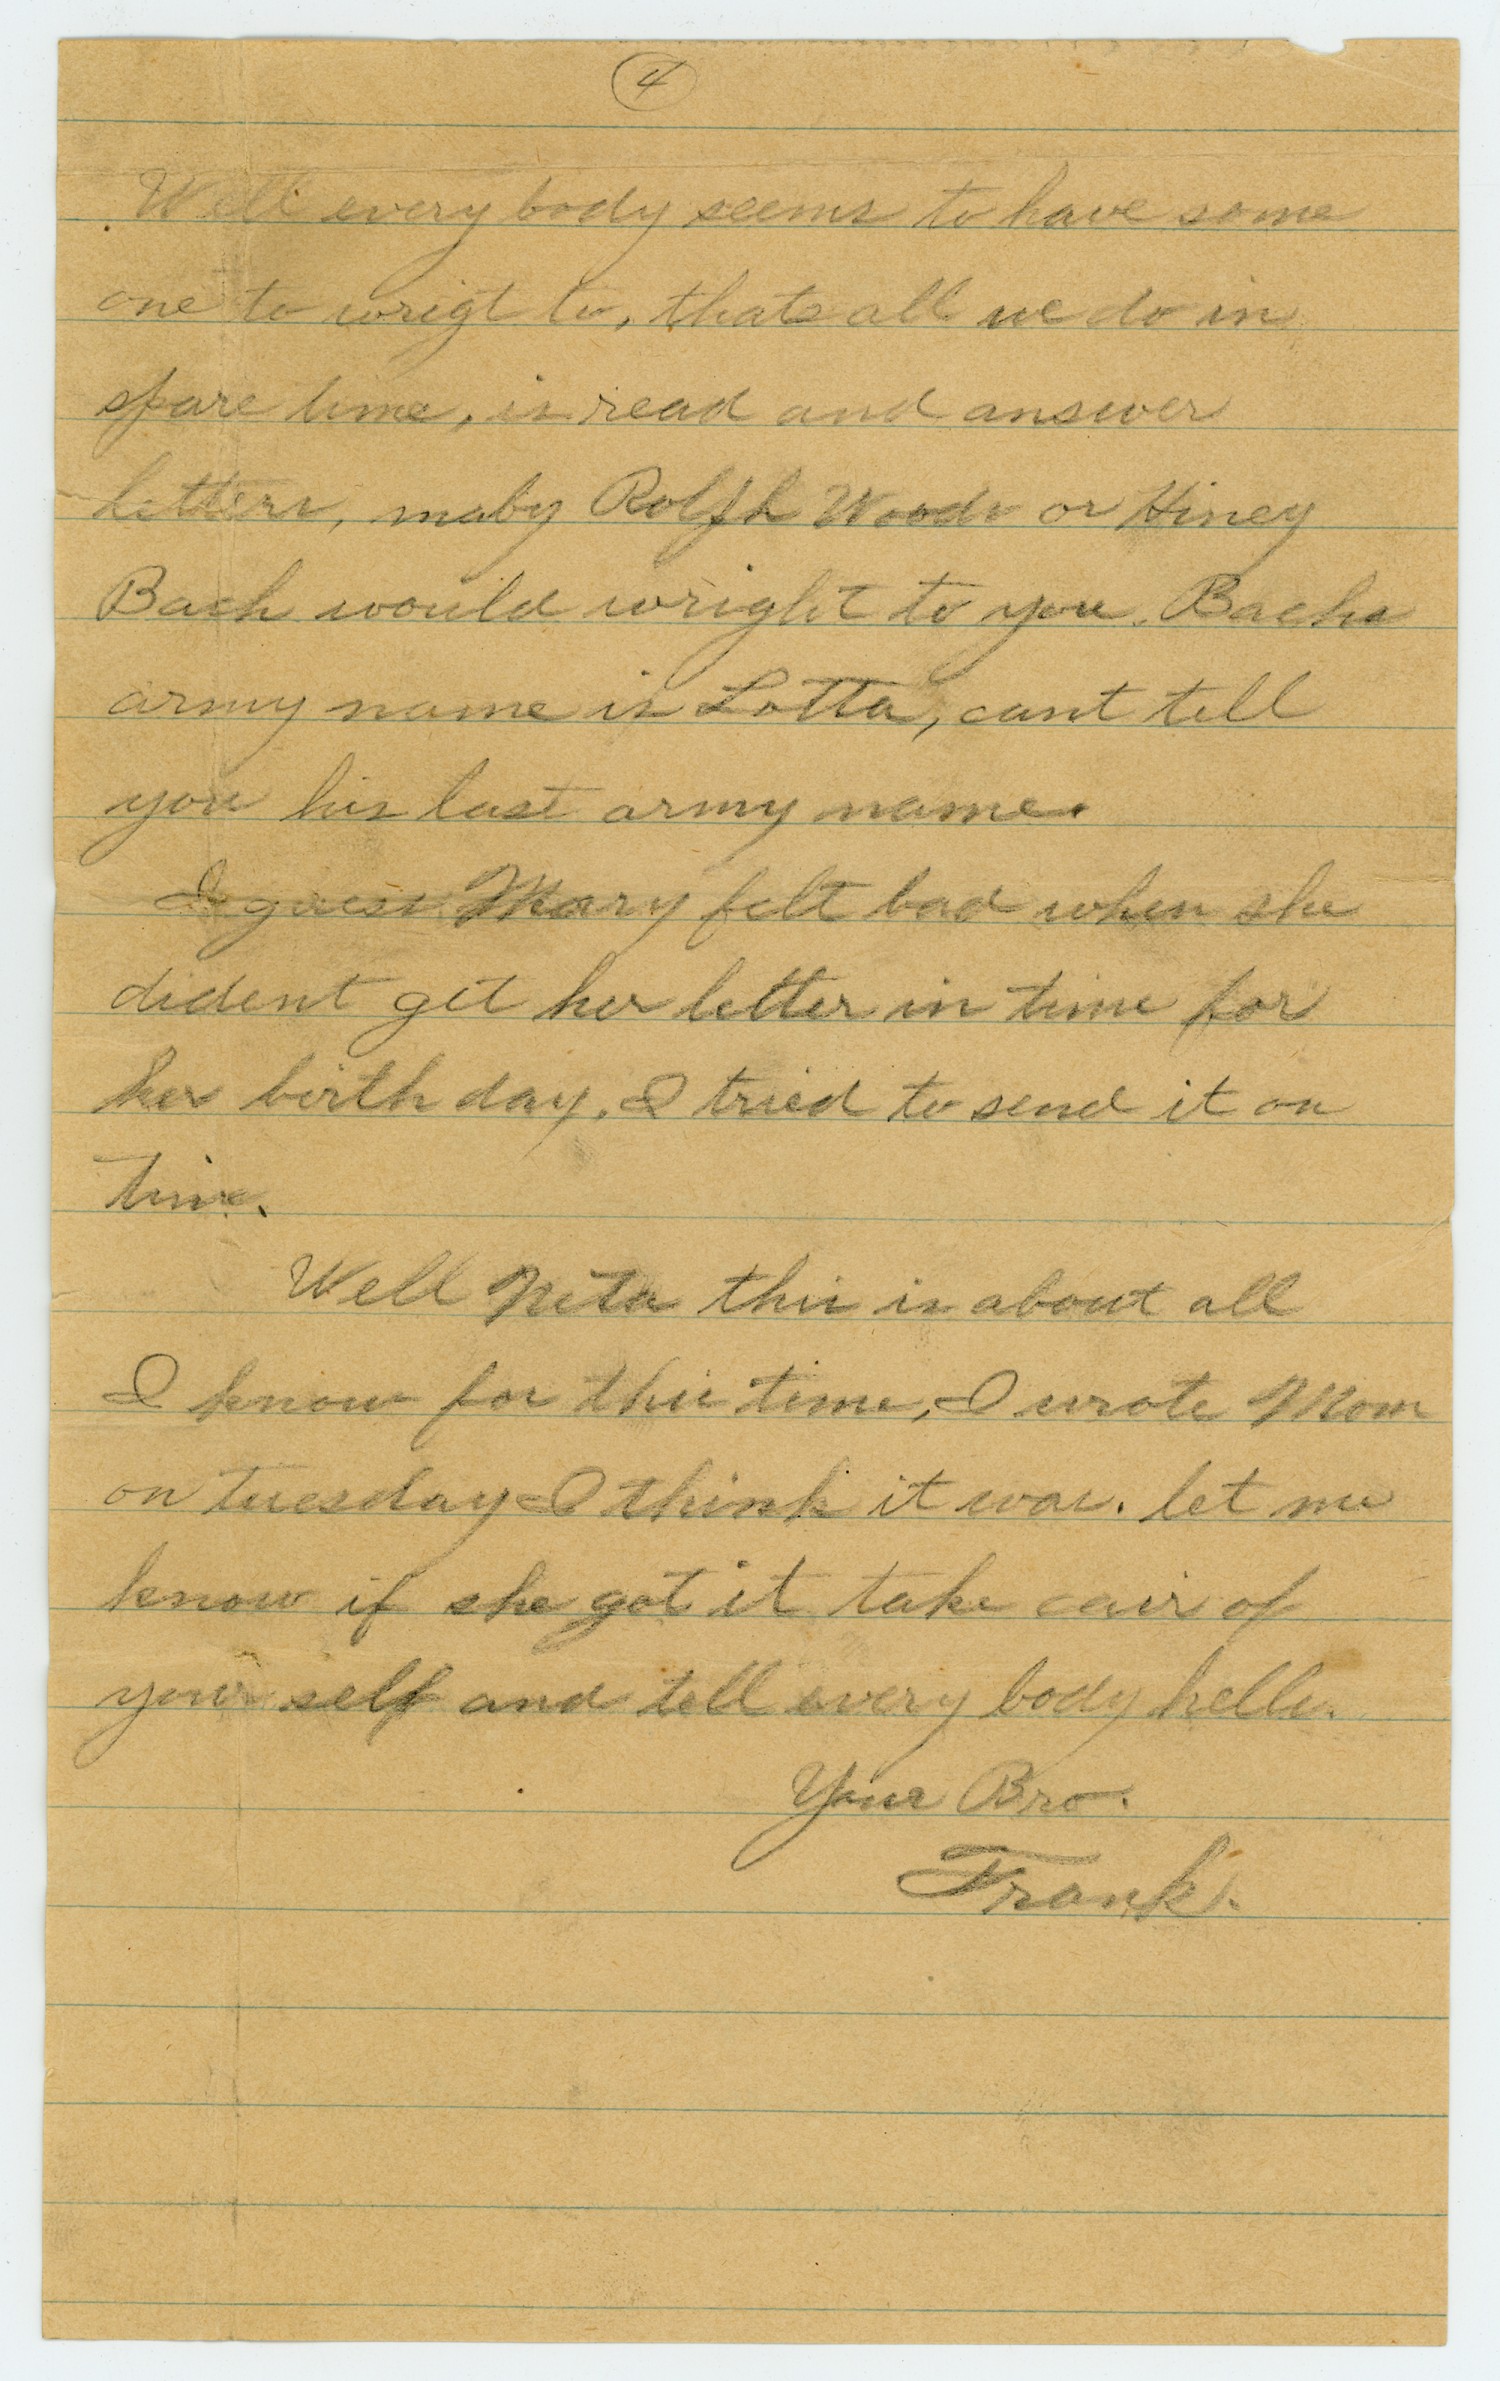 4
Well every body seems to have some
one to wrigt to, thats all we do in
spare time, is read and answer
letters, maby Rolfh Woods or Hiney
Bach would wright to you. Bachs
army name is Lotta, cant tell
you his last army name.
I guess Mary felt bad when she
dident get her letter in time for
her birth day, I tried to send it on
time.
Well Neta this is about all
I know for this time, I wrote Mom
on tuesday I think it was. let me
know if she got it take cair of
your self and tell every body hello.
Your Bro.
Frank.